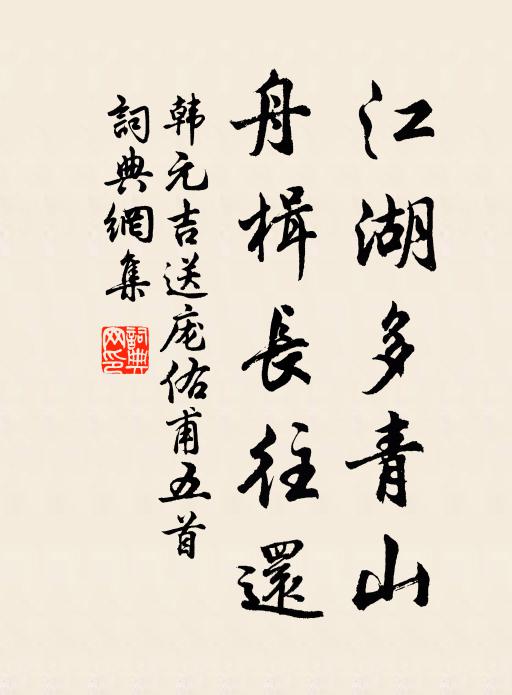 江湖多青山
舟楫長往還
韩元吉送庞佑甫五首
詞典網集
詞典网印